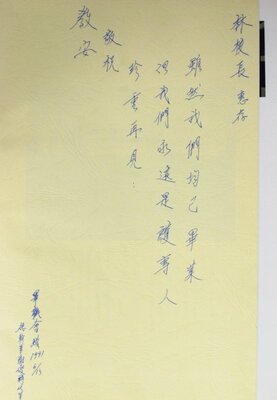 林校長 惠存
雖然我們均已畢業
但我們永遠是護專人
珍重再見：
敬祝
教安
畢聯會贈 1991